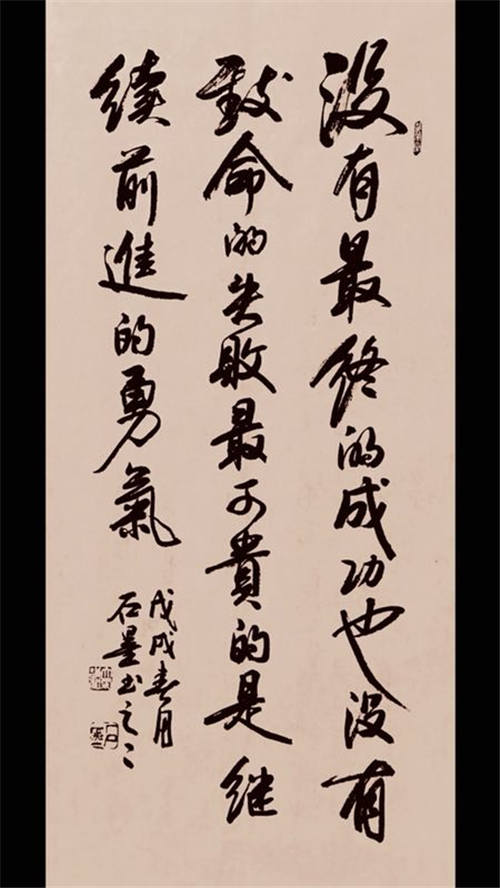 没有最终的成功也没有
致命的失败最可貴的是继
續前進的勇氣
戊戌春月
石墨书之